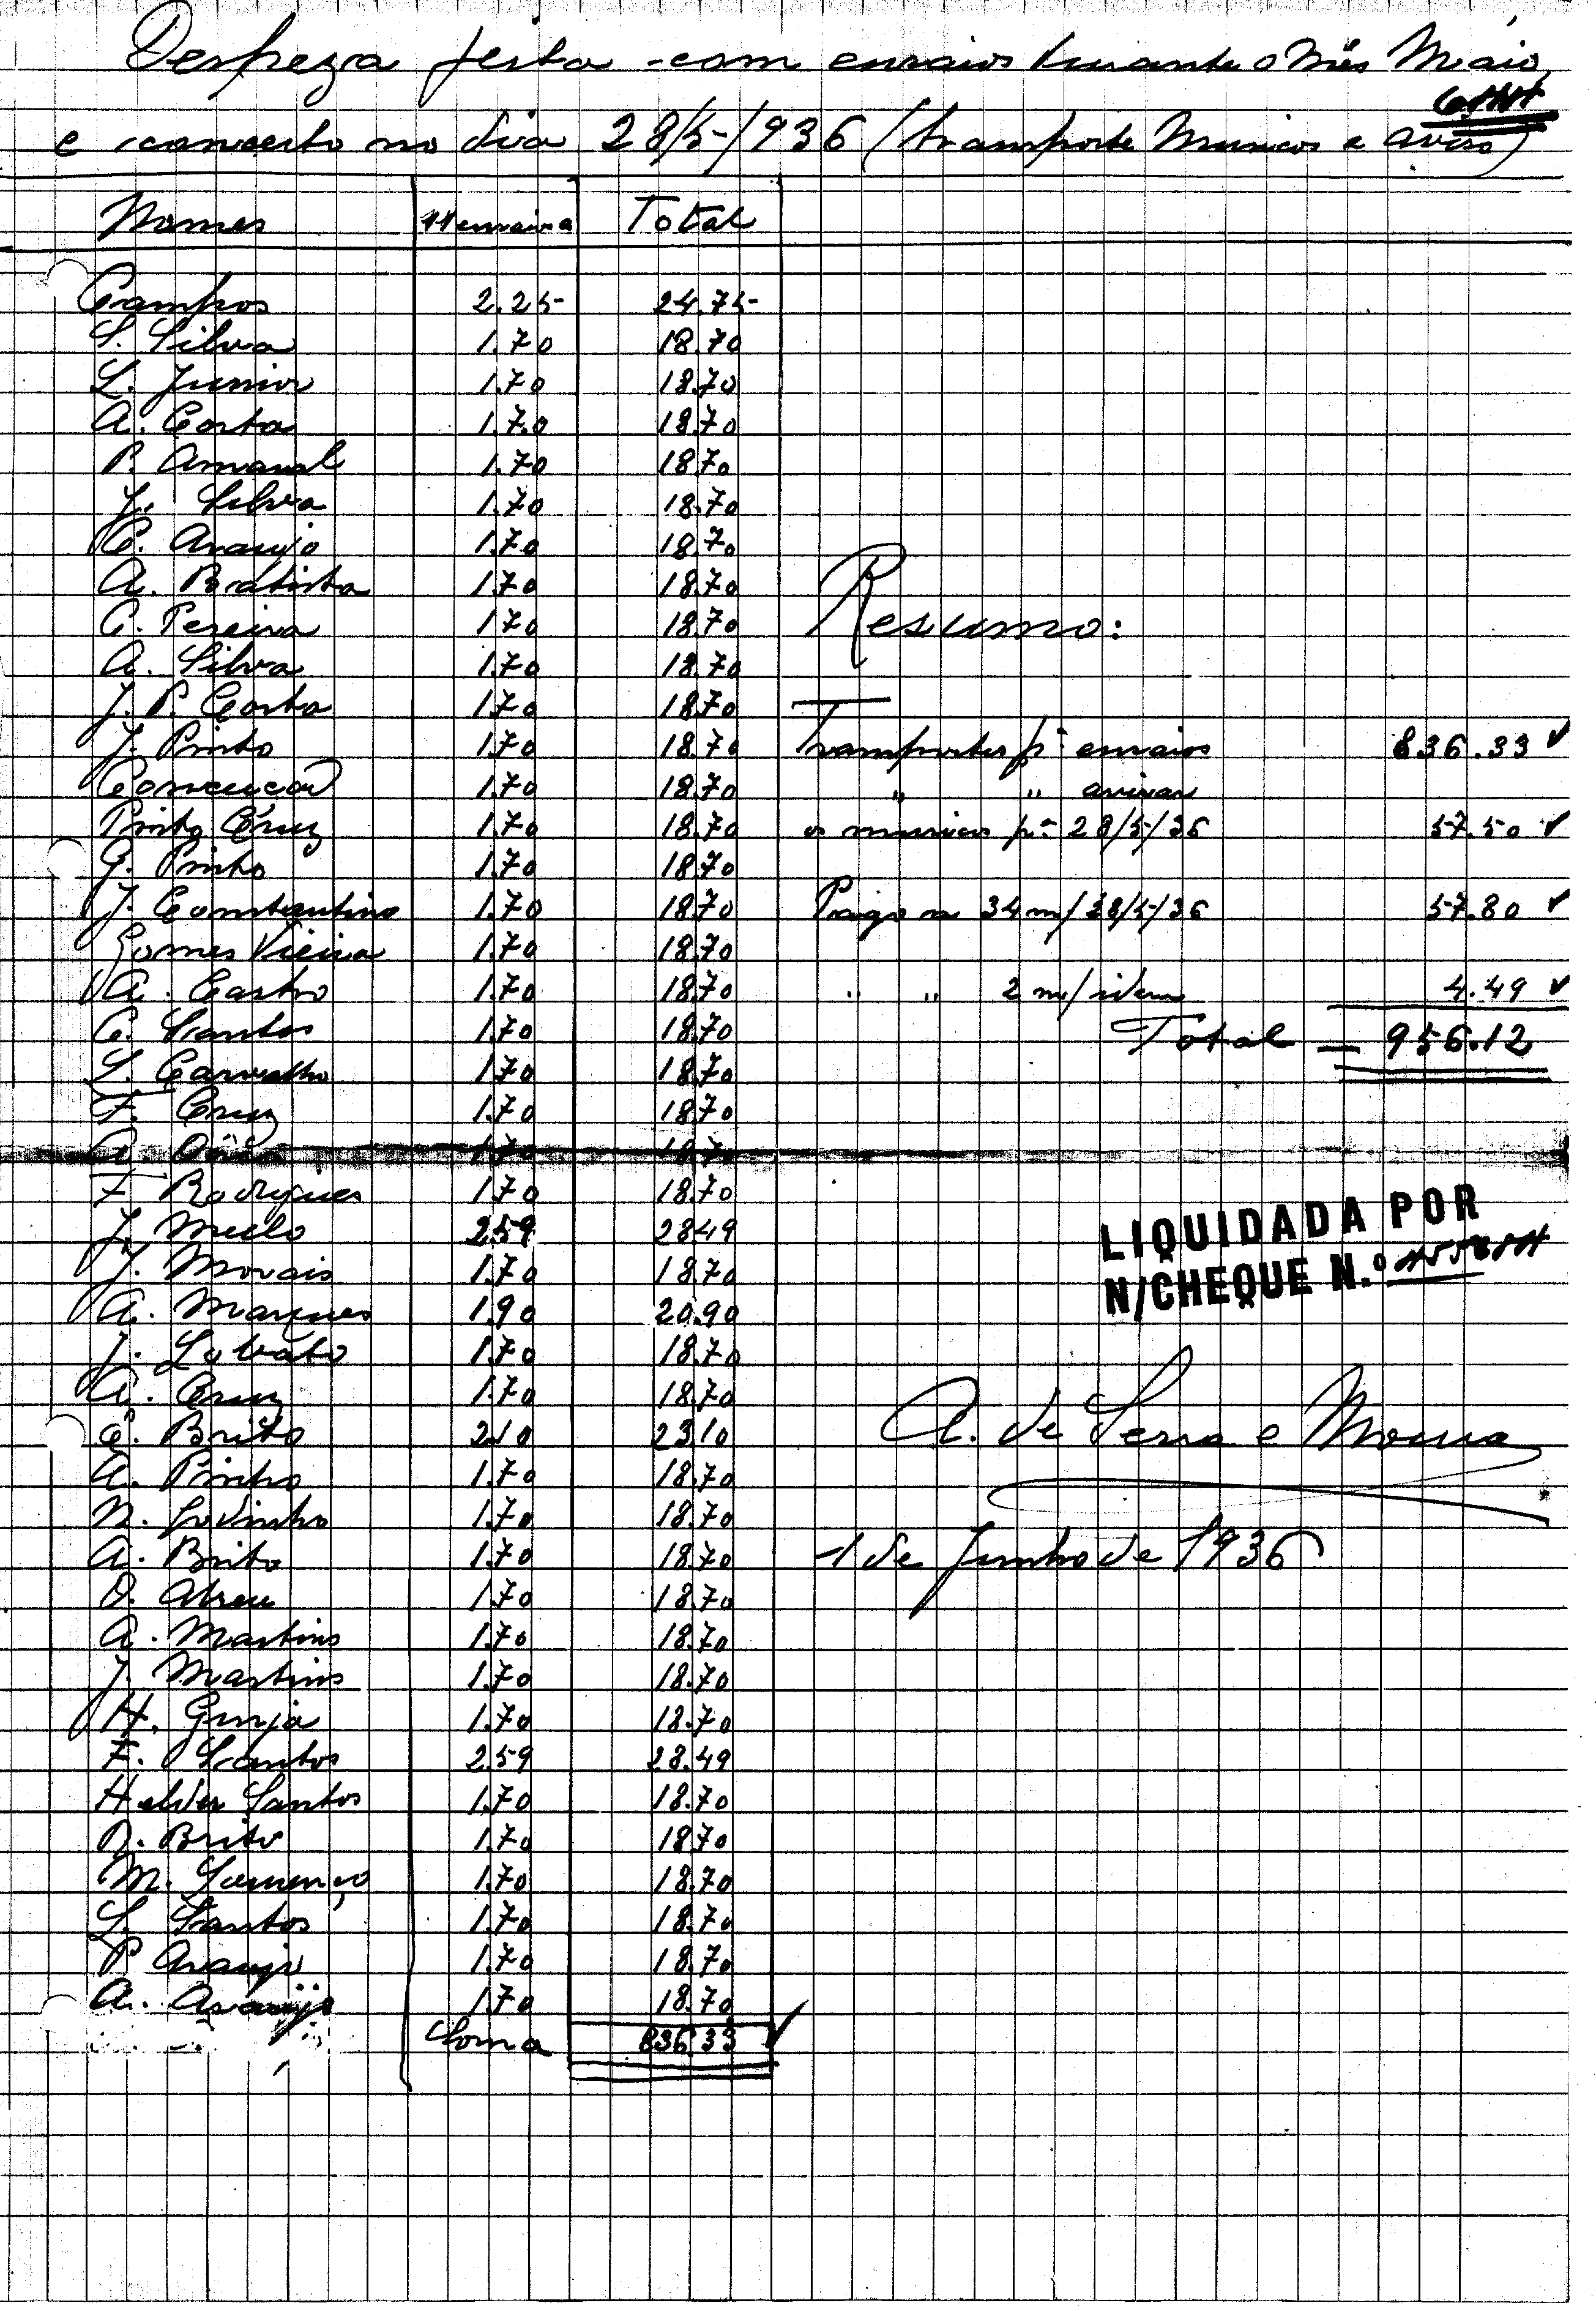 Despeza feita com ensaios durante o mês Maio,
e concerto no dia 28/5/936 (transporte Musicos e aviso)
Nomes 11 ensaios Total
Campos 2.25 24.75
S. Silva 1.70 18.70
L. Junior 1.70 18.70
A. Costa 1.70 18.70
P. Amaral 1.70 18.70
J. Silva 1.70 18.70
C. Araujo 1.70 18.70
A. Batista 1.70 18.70
C. Pereira 1.70 18.70
A. Silva 1.70 18.70
J. P. Costa 1.70 18.70
J. Pinto 1.70 18.70
Conceição 1.70 18.70
Pinto Cruz 1.70 18.70
G. Pinho 1.70 18.70
J. Constantino 1.70 18.70
Gomes Vieira 1.70 18.70
A. Castro 1.70 18.70
C. Santos 1.70 18.70
L. Carvalho 1.70 18.70
F. Cruz 1.70 18.70
A. 1.70 18.70
F. Rodrigues 1.70 18.70
J. Mello 2.59 28.49
J. Morais 1.70 18.70
A. Marques 1.90 20.90
J. Lobato 1.70 18.70
A. Cruz 1.70 18.70
C. Brito 2.10 23.10
A. Pinho 1.70 18.70
N. Godinho 1.70 18.70
A. Brito 1.70 18.70
O. Abreu 1.70 18.70
A. Martins 1.70 18.70
J. Martins 1.70 18.70
H. Ginja 1.70 18.70
F. Santos 2.59 28.49
Helder Santos 1.70 18.70
R. Brito 1.70 18.70
M. Lourenço 1.70 18.70
L. Santos 1.70 18.70
P. Araujo 1.70 18.70
A. Araujo 1.70 18.70
Soma 836.33
Resumo:
Transportes pª ensaios 836.33
" " avisar
os musicos pª 28/5/36 57.50
Pago a 34 m/28/5/36 57.80
" " 2 m/idem 4.49
Total = 956.12
LIQUIDADA POR
N/CHEQUE N.º
A. de Serra e Moura
1 de Junho de 1936